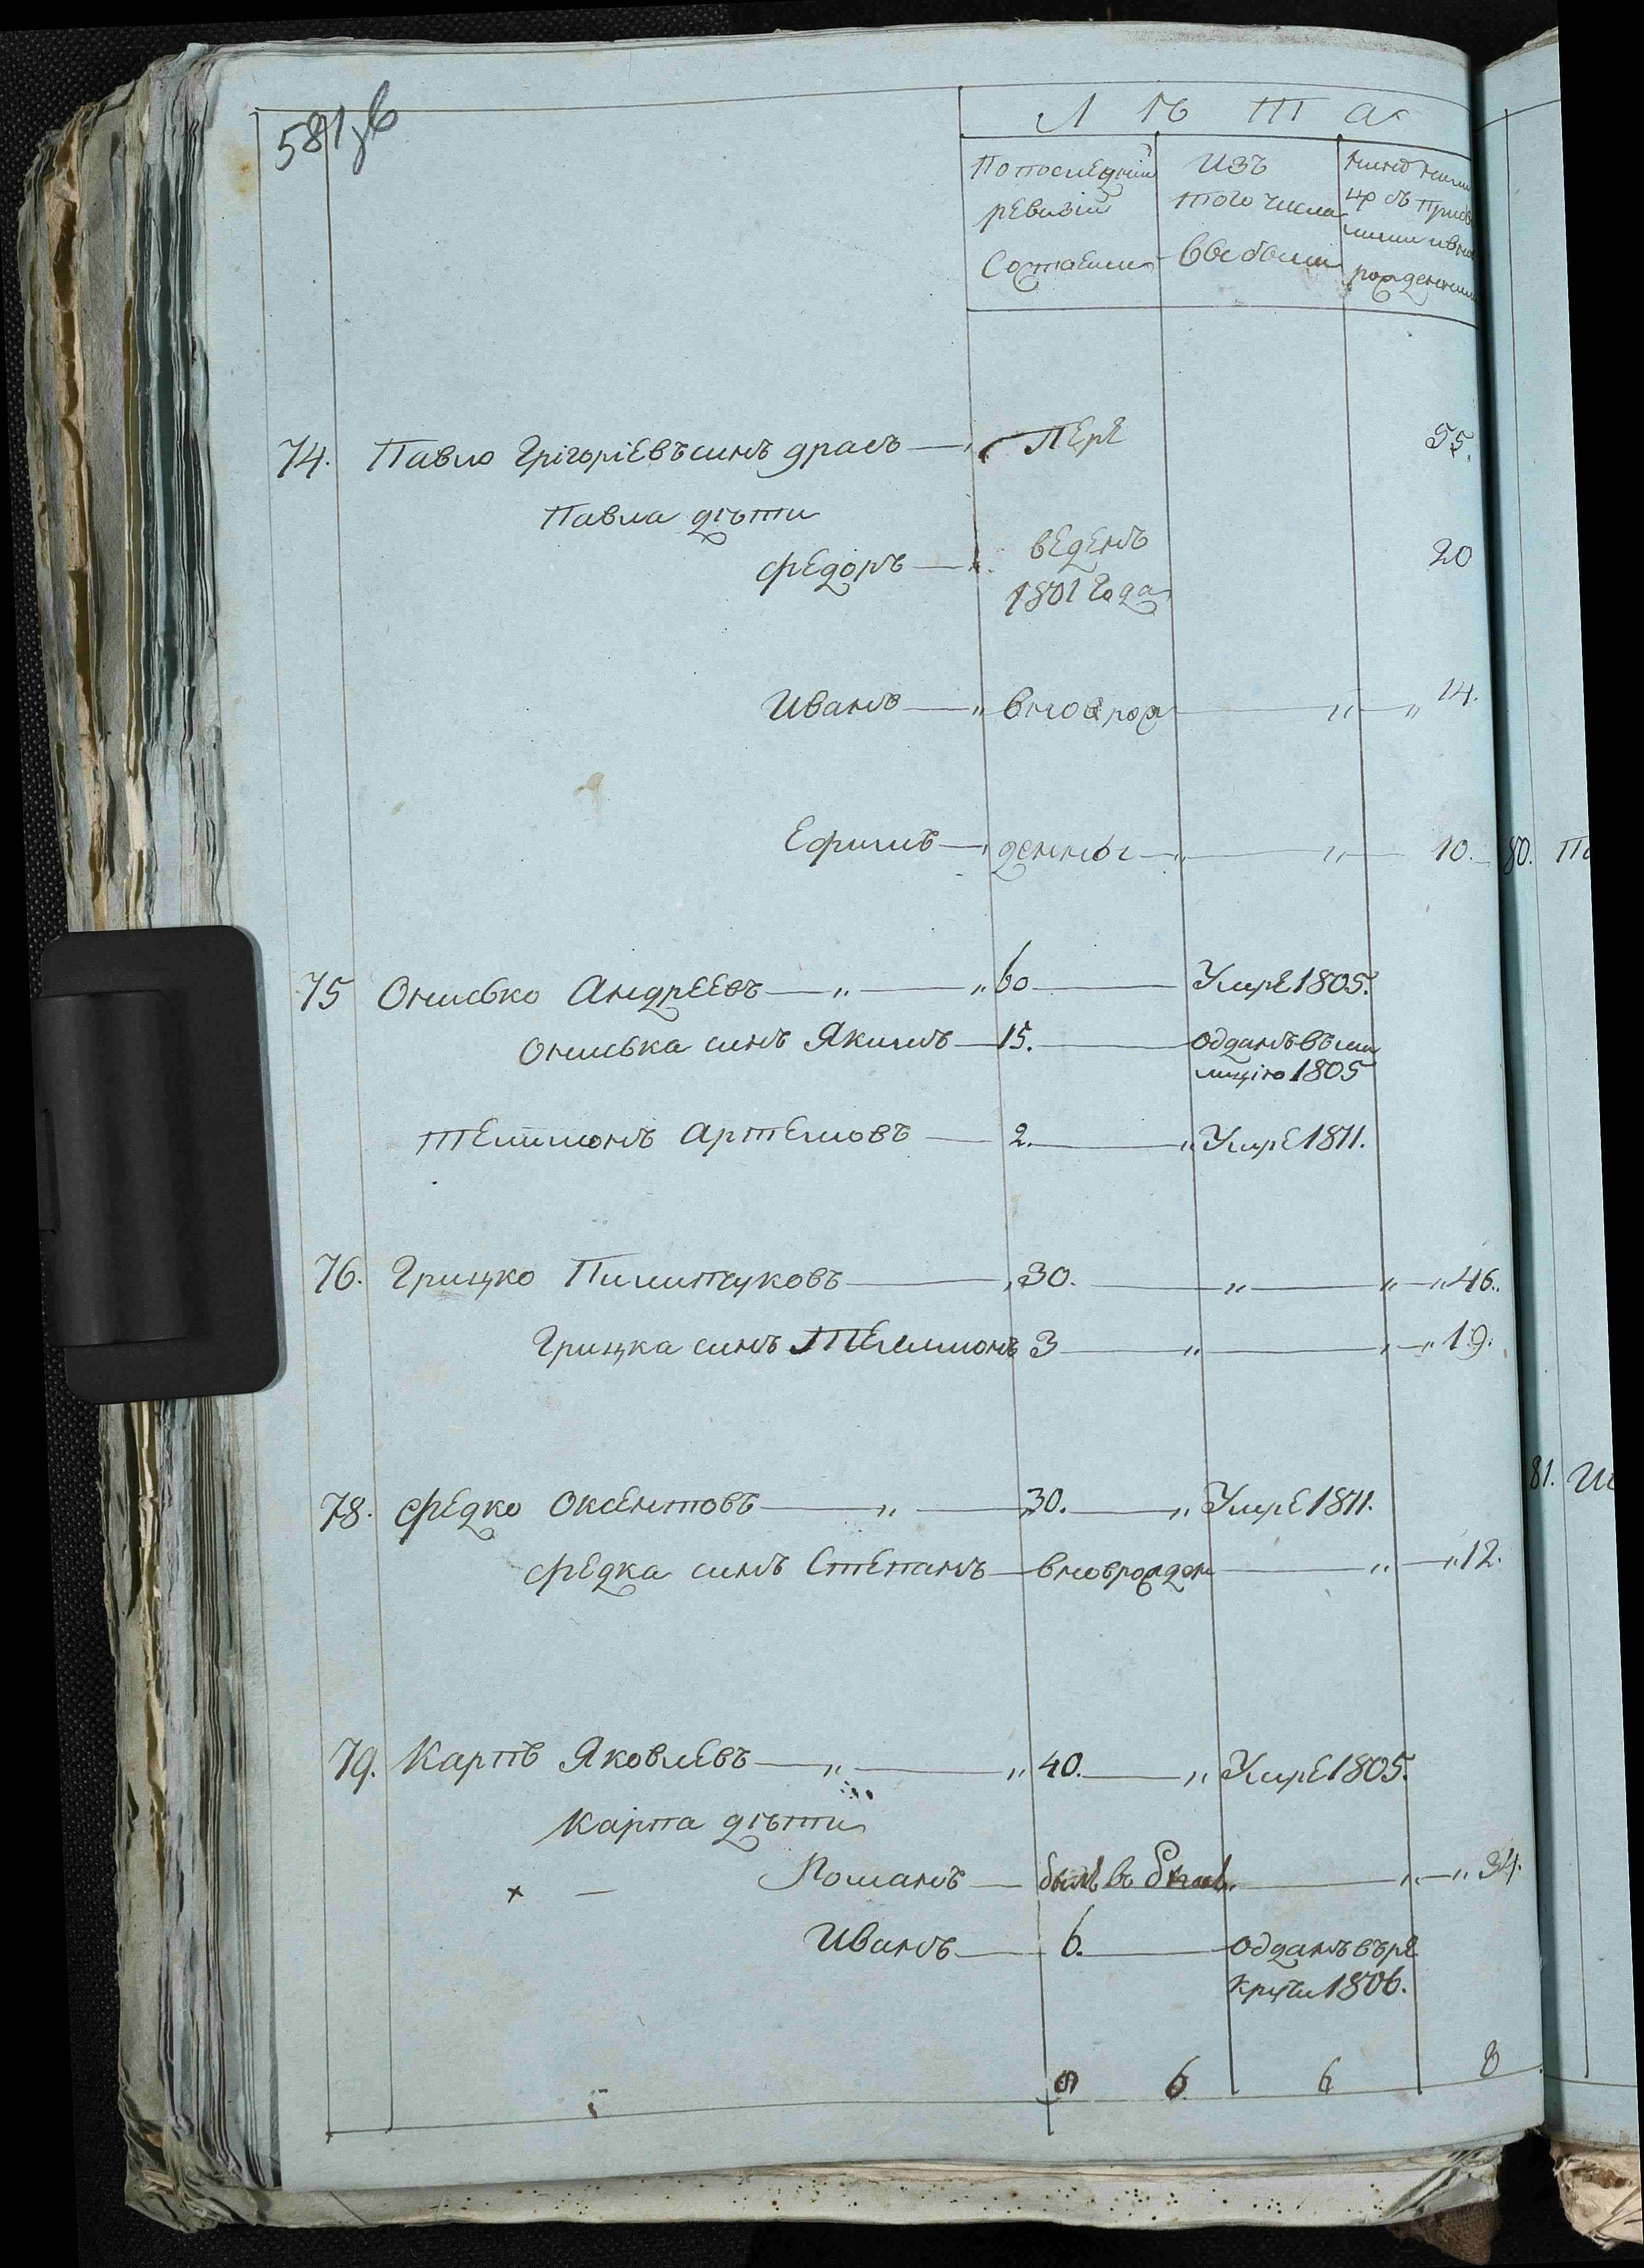 581
Л ѣ т а
По последний
ревизіи
Состаѣли
Изъ
того числа
выбыли
Ныне
рожденными
74. Павло Григоріевъ синъ драсъ — Пере 55.
Павла дѣти
Федоръ — веденъ 20
1801 Года
Иванъ — вновь рож — 14.
Ефимъ — денны — 10.
75 Онисько Андреевъ — 60 — Умре 1805.
Ониська синъ Якимъ — 15. — Отданъ въ ми
лицію 1805
Телимонъ Артемовъ — 2. — Умре 1811.
76. Грицко Пилипчуковъ — 30. — 46.
Грицка синъ Телимонъ 3 — 19.
78. Федко Оксентовъ — 30. — Умре 1811.
Федка синъ Степанъ — вновь рожден — 12.
79. Карпъ Яковлевъ — 40. — Умре 1805.
Карпа дѣти
× — Романъ — былъ въ — 34.
Иванъ — 6. — Отданъ въ ре
круты 1806.
6 6 8
80. По
81.